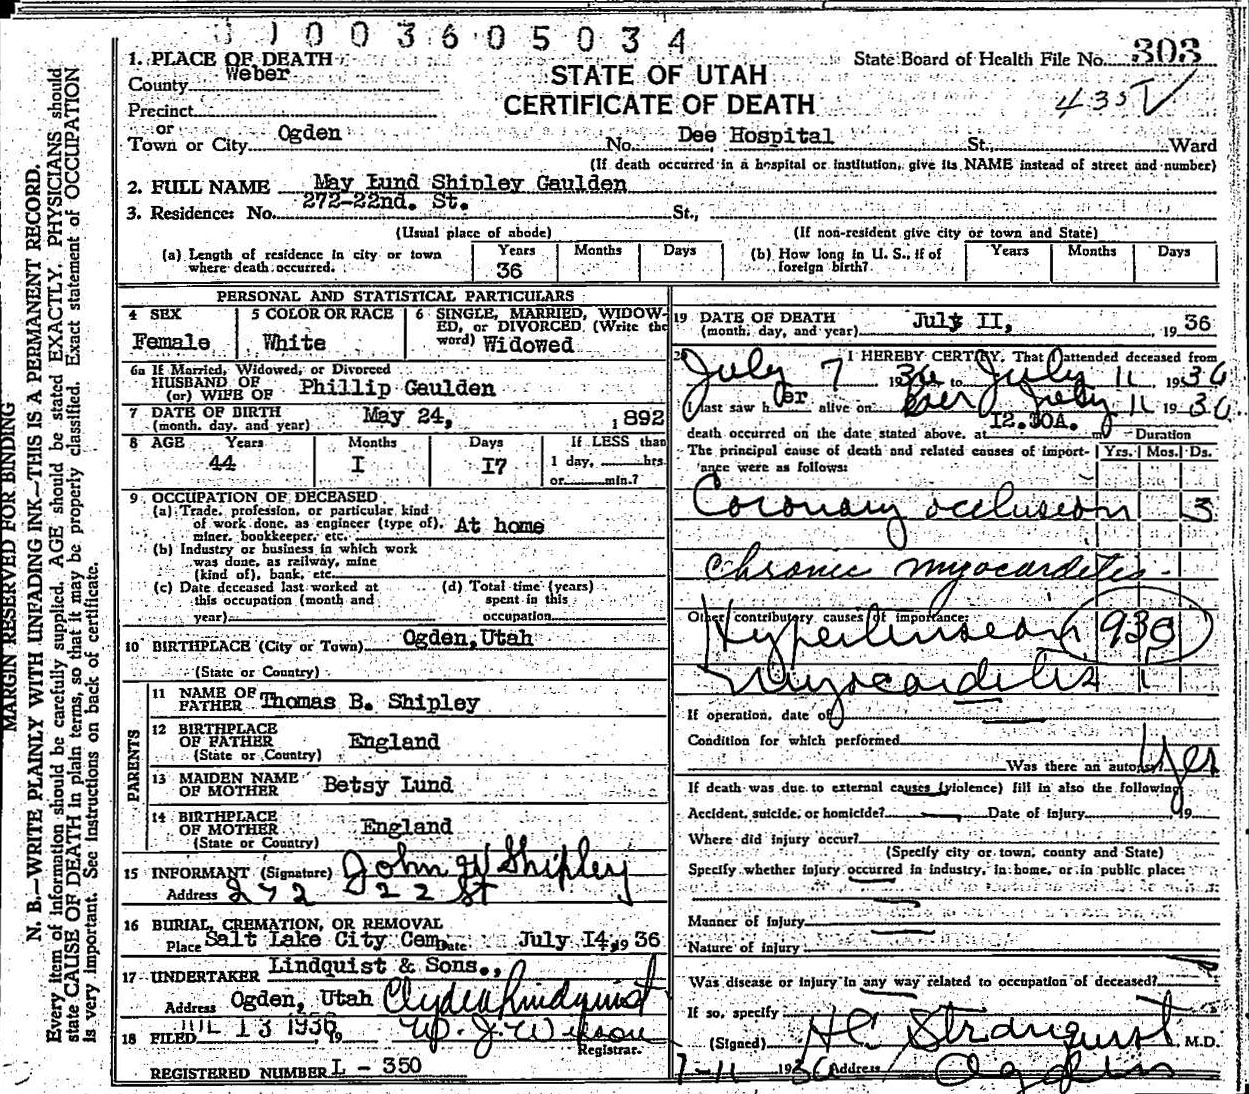 1 1 0 0 3 6 0 5 0 3 4
1. PLACE OF DEATH
County Weber
Precinct
or
Town or City Ogden
STATE OF UTAH
CERTIFICATE OF DEATH
State Board of Health File No. 303
435 V
No. Dee Hospital St., Ward
(If death occurred in a hospital or institution, give its NAME instead of street and number)
2. FULL NAME May Lund Shipley Gaulden
3. Residence: No. 272-22nd. St. St.,
(Usual place of abode) (If non-resident give city or town and State)
(a) Length of residence in city or town where death occurred. Years 36 Months Days
(b) How long in U. S., if of foreign birth? Years Months Days
PERSONAL AND STATISTICAL PARTICULARS
4 SEX Female
5 COLOR OR RACE White
6 SINGLE, MARRIED, WIDOW-
ED, or DIVORCED (Write the
word) Widowed
6a If Married, Widowed, or Divorced
HUSBAND OF
(or) WIFE OF Phillip Gaulden
7 DATE OF BIRTH
(month, day, and year) May 24, 1892
8 AGE Years 44 Months I Days I7 If LESS than
1 day, hrs.
or min.?
9 OCCUPATION OF DECEASED
(a) Trade, profession, or particular kind
of work done, as engineer (type of),
miner, bookkeeper, etc. At home
(b) Industry or business in which work
was done, as railway, mine
(kind of), bank, etc.
(c) Date deceased last worked at
this occupation (month and
year)
(d) Total time (years)
spent in this
occupation
10 BIRTHPLACE (City or Town) Ogden, Utah
(State or Country)
PARENTS
11 NAME OF
FATHER Thomas B. Shipley
12 BIRTHPLACE
OF FATHER England
(State or Country)
13 MAIDEN NAME
OF MOTHER Betsy Lund
14 BIRTHPLACE
OF MOTHER England
(State or Country)
15 INFORMANT (Signature) John W Shipley
Address 272 22 St
16 BURIAL, CREMATION, OR REMOVAL
Place Salt Lake City Cem Date July I4, 19 36
17 UNDERTAKER Lindquist & Sons.,
Address Ogden, Utah Clyde Lindquist
18 FILED JUL 13 1936, 19 W. J. Wilson
Registrar.
REGISTERED NUMBER L - 350
19 DATE OF DEATH
(month, day, and year) July II, 19 36
20 I HEREBY CERTIFY, That I attended deceased from
July 7 1936 to July 11 1936
I last saw her alive on July 11 1936
death occurred on the date stated above, at I2.30A. m Duration
The principal cause of death and related causes of import-
ance were as follows: Yrs. Mos. Ds.
Coronary occlusion 3
Chronic myocarditis
Other contributory causes of importance:
Hypertension 93c
Myocarditis 1
If operation, date of
Condition for which performed
Was there an autopsy? Yes
If death was due to external causes (violence) fill in also the following:
Accident, suicide, or homicide? Date of injury 19
Where did injury occur?
(Specify city or town, county and State)
Specify whether injury occurred in industry, in home, or in public place:
Manner of injury
Nature of injury
Was disease or injury in any way related to occupation of deceased?
If so, specify
(Signed) HC Stranquist M.D.
7-11 1936 Address Ogden
MARGIN RESERVED FOR BINDING
N. B.—WRITE PLAINLY WITH UNFADING INK—THIS IS A PERMANENT RECORD.
Every item of information should be carefully supplied. AGE should be stated EXACTLY. PHYSICIANS should
state CAUSE OF DEATH in plain terms, so that it may be properly classified. Exact statement of OCCUPATION
is very important. See instructions on back of certificate.